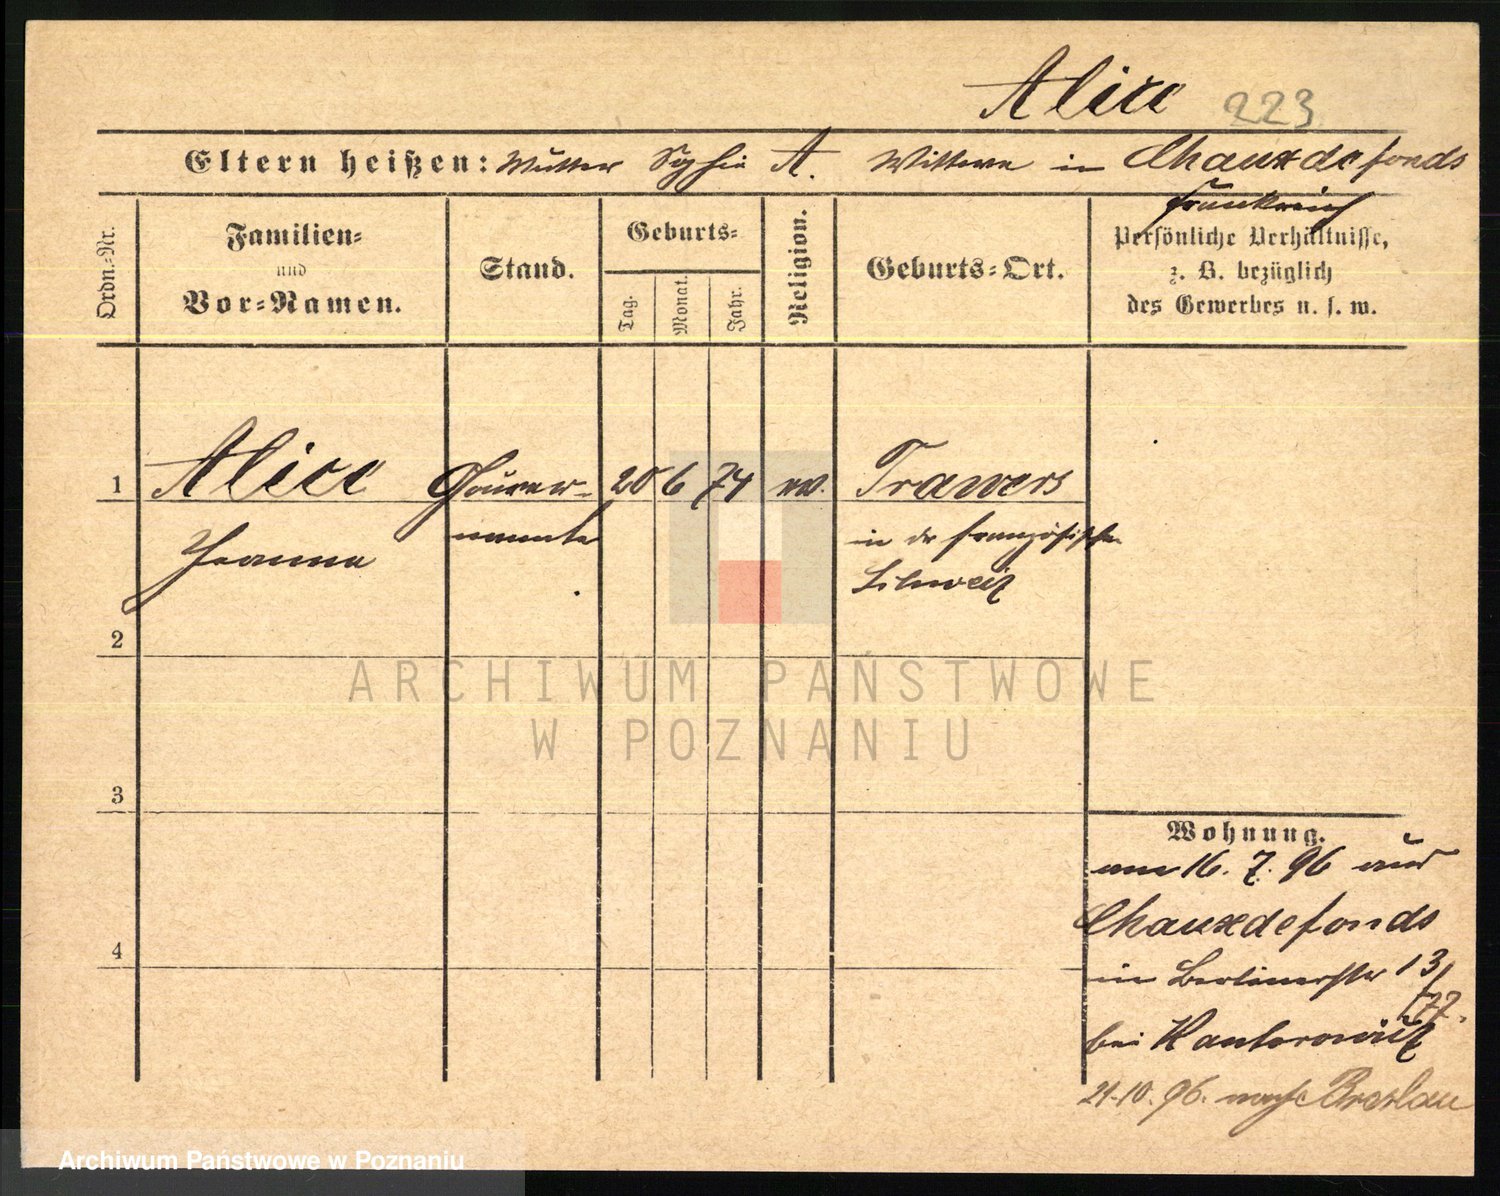 Alice 223
Eltern heißen: Mutter Sophie A. Wittwe in Chauxdefonds
Frankreich
Ordn.-Nr.
Familien-
und
Vor-Namen.
Stand.
Geburts-
Tag.
Monat.
Jahr.
Religion.
Geburts-Ort.
Persönliche Verhältnisse,
z. B. bezüglich
des Gewerbes u. s. w.
1 Alice Gouver- 20 6 74 ev. Trawers
Jeanne nante in der französischen
Schweiz
2
3
4
Wohnung.
am 16. 7. 96 aus
Chauxdefonds
in Berlinerstr 13/
77.
bei Kantorowicz
21.10.96. nach Breslau
ARCHIWUM PAŃSTWOWE
W POZNANIU
Archiwum Państwowe w Poznaniu